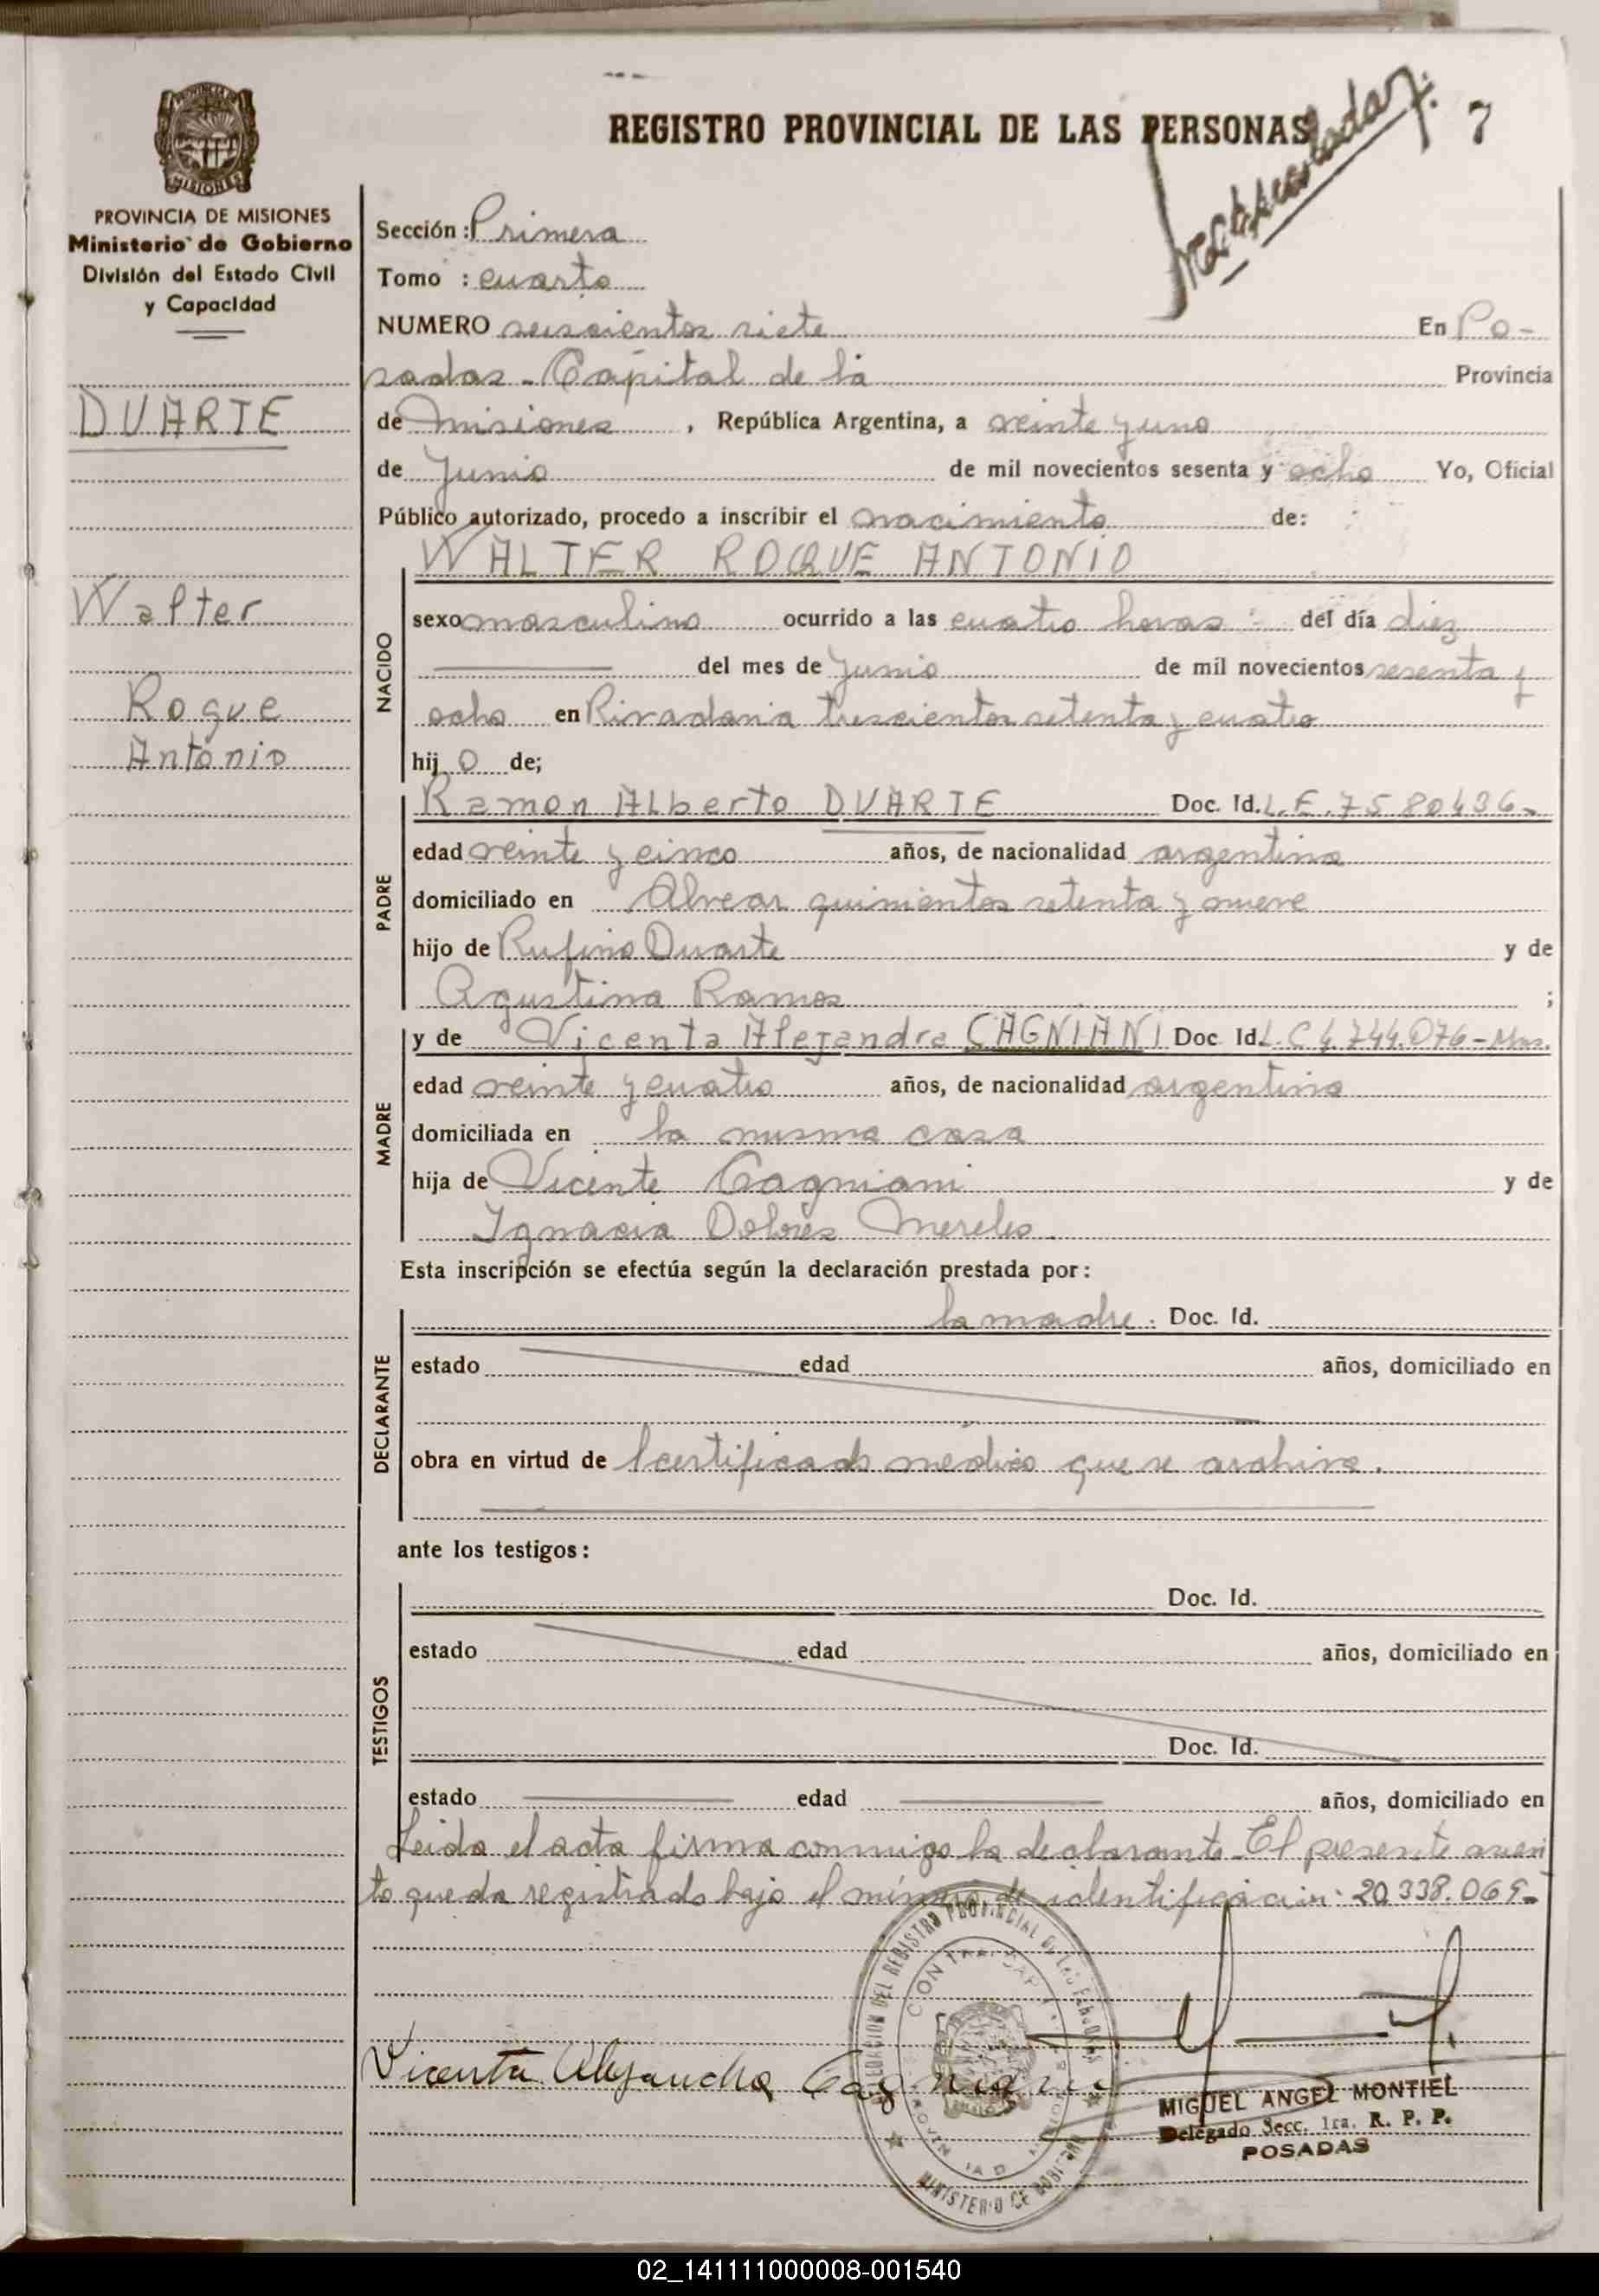 REGISTRO PROVINCIAL DE LAS PERSONAS
7
PROVINCIA DE MISIONES
Ministerio de Gobierno
División del Estado Civil
y Capacidad
DUARTE
Walter
Roque
Antonio
Sección: Primera
Tomo : cuarto
NUMERO seiscientos siete En Po-
sadas - Capital de la Provincia
de Misiones, República Argentina, a veinte y uno
de Junio de mil novecientos sesenta y ocho Yo, Oficial
Público autorizado, procedo a inscribir el nacimiento de:
NACIDO
WALTER ROQUE ANTONIO
sexo masculino ocurrido a las cuatro horas del día diez
del mes de Junio de mil novecientos sesenta y
ocho en Rivadavia trescientos setenta y cuatro
hijo de;
PADRE
Ramon Alberto DUARTE Doc. Id. L.E. 7580436-
edad veinte y cinco años, de nacionalidad argentina
domiciliado en Alvear quinientos setenta y nueve
hijo de Rufino Duarte y de
Agustina Ramos ;
MADRE
y de Vicenta Alejandra CAGNIANI Doc Id. L.C 4.744.076-
edad veinte y cuatro años, de nacionalidad argentina
domiciliada en la misma casa
hija de Vicente Cagniani y de
Ignacia Dolores Mereles.
Esta inscripción se efectúa según la declaración prestada por:
DECLARANTE
la madre. Doc. Id.
estado edad años, domiciliado en
obra en virtud de certificado médico que se archiva.
ante los testigos:
TESTIGOS
Doc. Id.
estado edad años, domiciliado en
Doc. Id.
estado edad años, domiciliado en
Leida el acta firma conmigo la declarante. El presente asien
to queda registrado bajo el número de identificación: 20.338.069-
Vicenta Alejandra Cagniani
MINISTERIO DE GOBIERNO
MIGUEL ANGEL MONTIEL
Delegado Secc. 1ra. R. P. P.
POSADAS
02_141111000008-001540